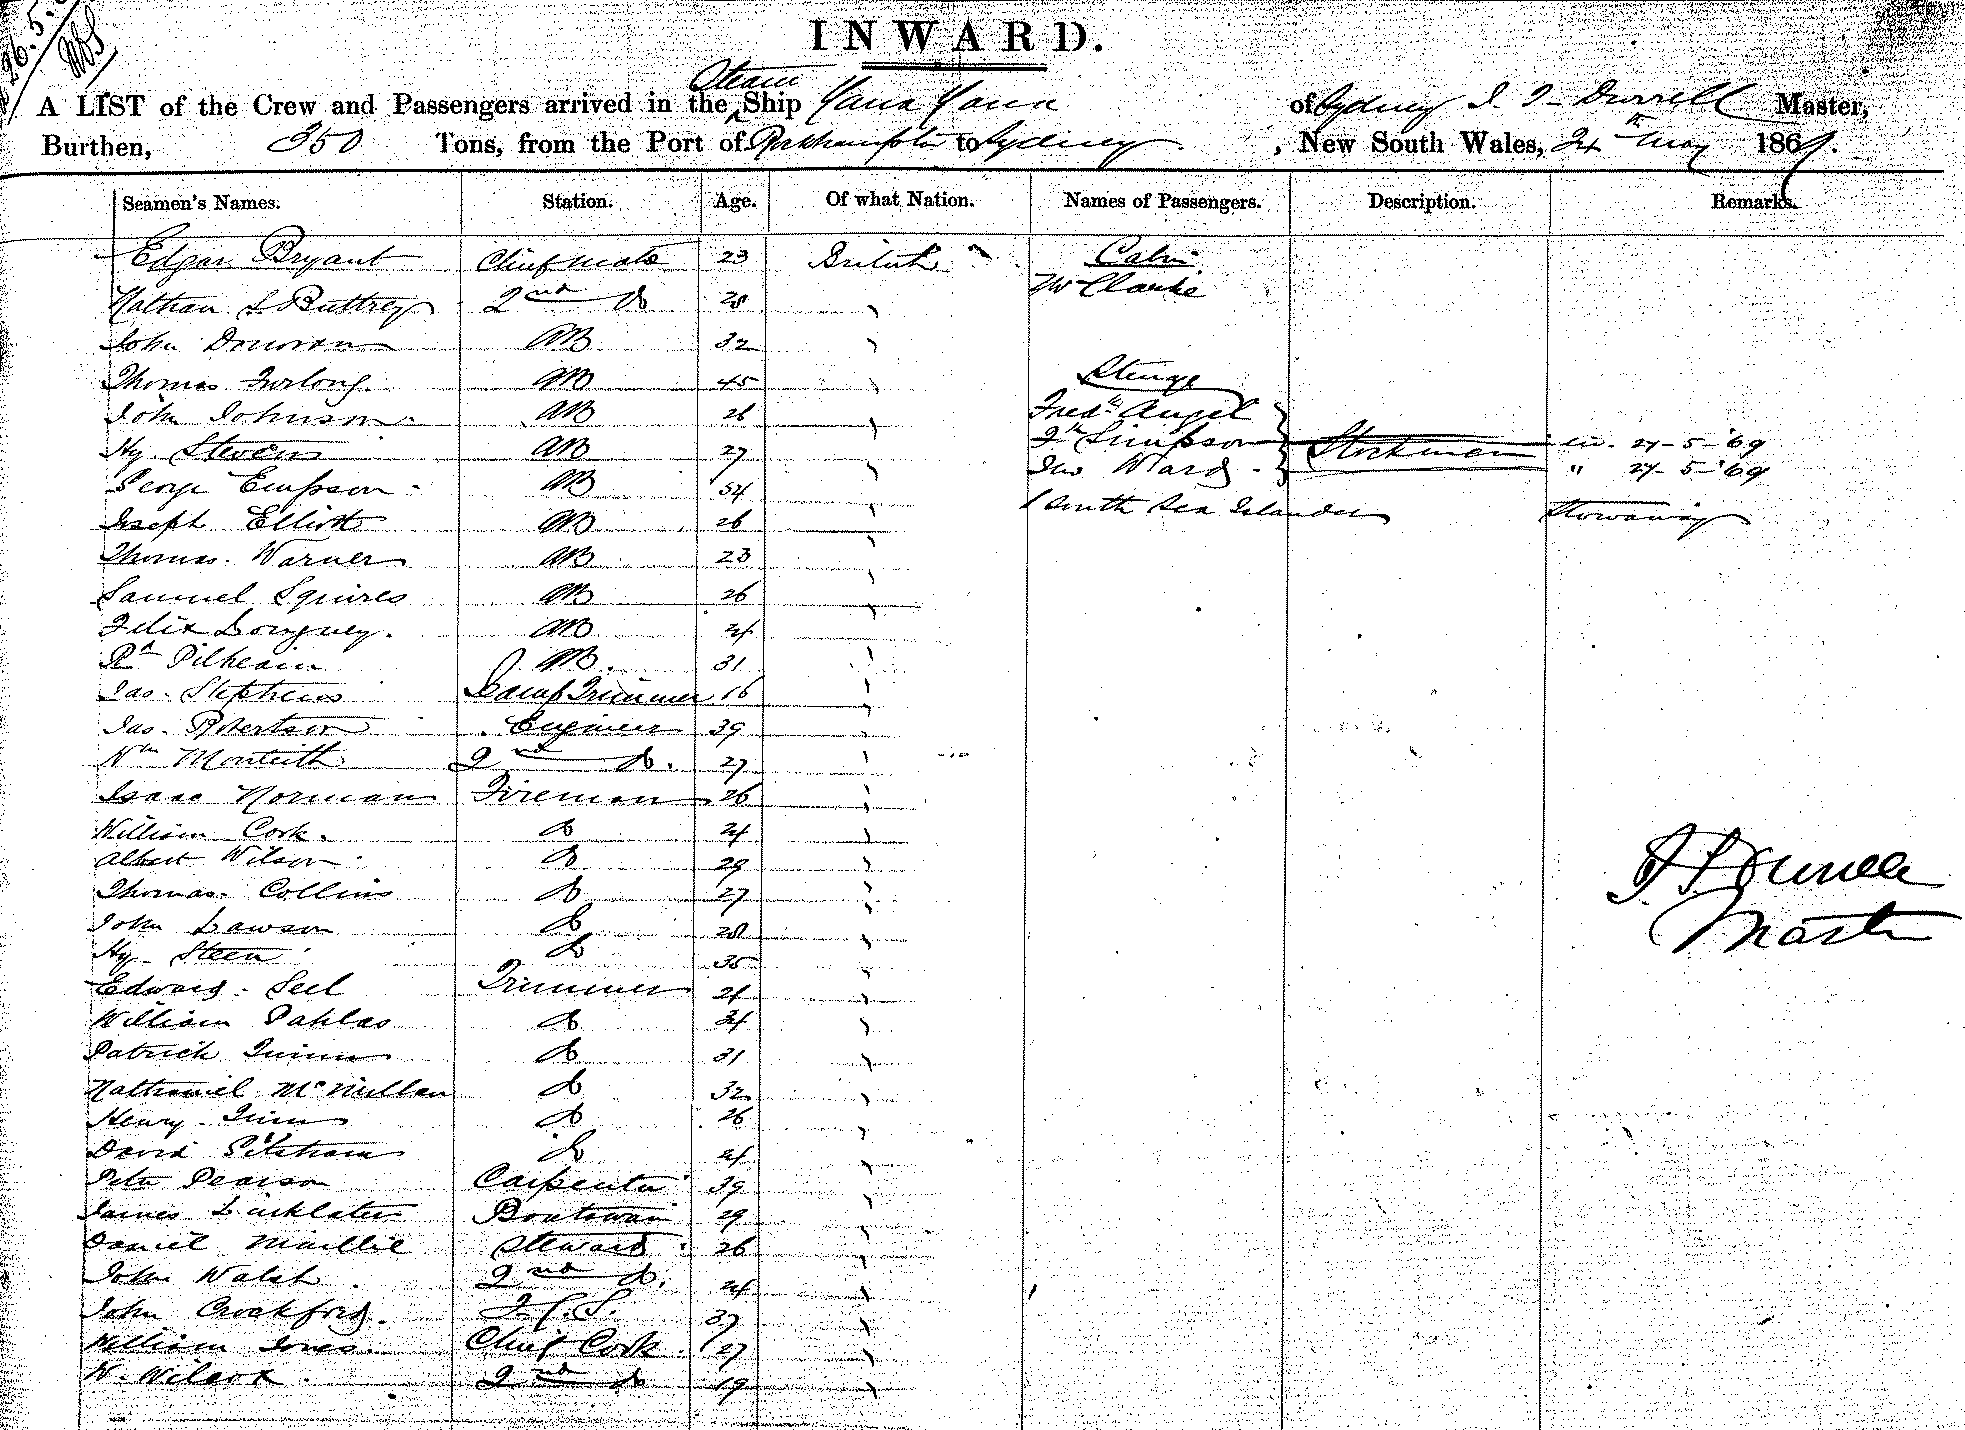 26. 5.
INWARD.
Steam
A LIST of the Crew and Passengers arrived in the Ship Yarra Yarra of Sydney Master,
Burthen, 350 Tons, from the Port of Rockhampton to Sydney, New South Wales, 24th May 1869.
Seamen's Names. Station. Age. Of what Nation. Names of Passengers. Description. Remarks.
Edgar Bryant Chief Mate 23 British Cabin
Nathan S Buttrey 2nd Do 28 " Mr Clarke
John Donovan AB 32 "
Thomas Furlong AB 45 " Steerage
John Johnson AB 26 " Fredk Angel
Hy. Stevens AB 27 " Simpson Stockmen 27-5-'69
George Empson AB 34 " Jno Ward " 27-5-'69
Joseph Elliott AB 26 " 1 South Sea Islander Stowaway
Thomas Warner AB 23 "
Samuel Squires AB 26 "
Felix AB 24 "
Rd AB 31 "
Jas. Stephens Lamp Trimmer 16 "
Jas. Robertson Engineer 39 "
Wm Monteith 2nd Do. 27 "
Isaac Norman Fireman 26 "
William Cook. Do 24 "
Albert Wilson Do 29 "
Thomas Collins Do 27 "
John Lawson Do 28 "
Hy. Steen Do 35 "
Edward Seel Trimmer 24 "
William Pahlas Do 34 "
Patrick Quinn Do 31 "
Nathaniel McMullan Do 32 "
Henry Do 26 "
David Do 24 "
Peter Pearson Carpenter 39 "
James Linklater Boatswain 29 "
Daniel Maillie Steward 26 "
John Walsh 2nd Do. 24 "
John Crockford. F.C.S. 37 "
William Jones Chief Cook 27 "
W. Wilcox 2nd Do 19 "
Master